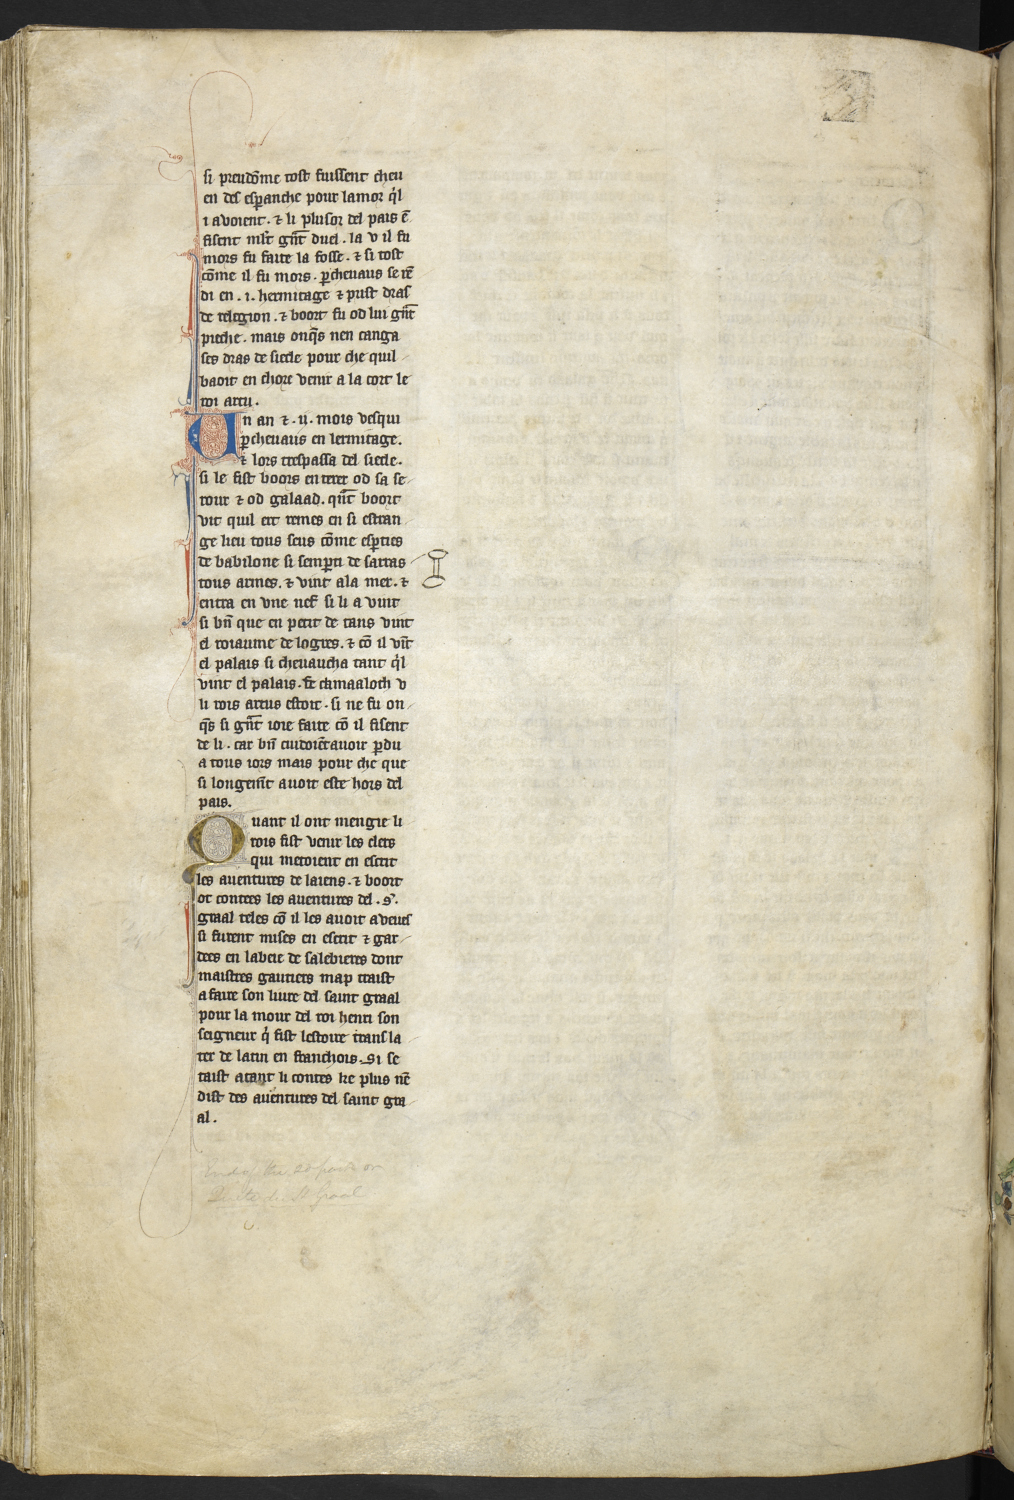 si preudõme tost fuissent cheu
en des esperanche pour lamor q̉l
i avoient. ⁊ li plusor del pais ẽ
fisent ml̃t gñt duel. la v il fu
mors fu faite la fosse. ⁊ si tost
cõme il fu mors. ꝑcheuaus se rẽ
di en .i. hermitage ⁊ prist dras
de relegion. ⁊ boort fu od lui gñt
pieche. mais onq̃s nen canga
ses dras de siecle pour che quil
baoit en chore venir a la cort le
roi artu.
Un an ⁊ .ii. mois vesqui
ꝑcheuaus en lermitage.
⁊ lors trespassa del siecle.
si le fist boors enterer od sa se
rour ⁊ od galaad. qñt boort
vit quil ert remes en si estran
ge lieu tous seus cõme es ꝑties
de babilone si sem ꝑti de sarras
tous armes. ⁊ vint ala mer. ⁊
entra en vne nef si li a vint
si bñ que en petit de tans vint
el roiaume de logres. ⁊ cõ il vĩt
el palais si cheuaucha tant q̉l
vint el palais. de camaaloth v
li rois artus estoit. si ne fu on
q̃s si gñt ioie faite cõ il fisent
de li. car bñ cuidoiẽt auoir ꝑdu
a tous iors mais pour che que
si longemẽt auoit este hors del
pais.
Quant il ont mengie li
rois fist venir les clers
qui metoient en escrit
les auentures de laiens. ⁊ boort
ot contees les auentures del .s'.
graal teles cõ il les auoit a veues
si furent mises en escrit ⁊ gar
dees en labeie de salebieres dont
maistres gautiers map traist
a faire son liure del saint graal
pour la mour del roi henri son
seigneur q̉ fist lestoire trans la
ter de latin en franchois. Si se
taist atant li contes ke plus nẽ
dist des auentures del saint gra
al.
End of the 2d part or
Queste du St Graal